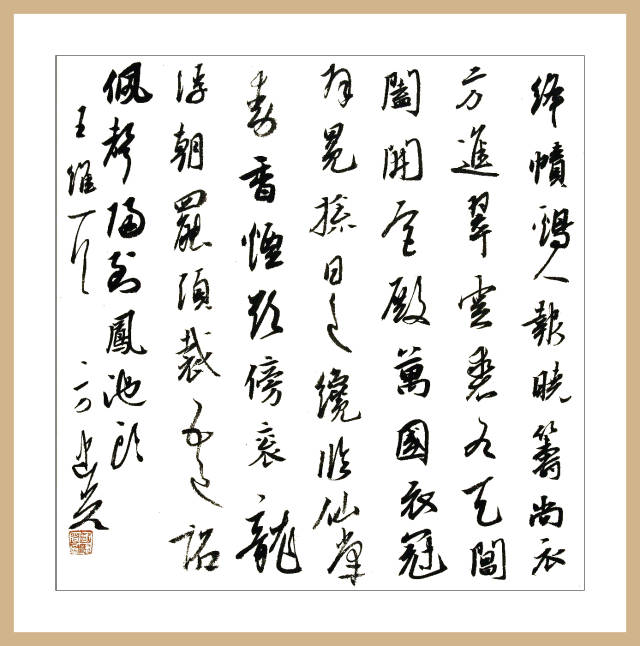 絳幘鷄人報曉籌尚衣
方進翠雲裘九天閶
闔開宮殿萬國衣冠
拜冕旒日色纔臨仙掌
動香煙欲傍袞龍
浮朝罷須裁五色詔
佩聲歸到鳳池頭
王維